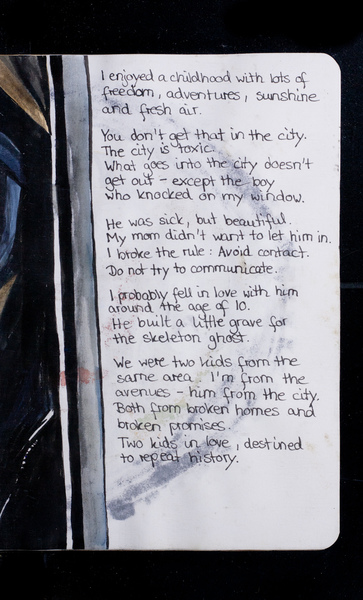 I enjoyed a childhood with lots of
freedom, adventures, sunshine
and fresh air.
You don't get that in the city.
The city is toxic.
What goes into the city doesn't
get out - except the boy
who knocked on my window.
He was sick, but beautiful.
My mom didn't want to let him in.
I broke the rule: Avoid contact.
Do not try to communicate.
I probably fell in love with him
around the age of 10.
He built a little grave for
the skeleton ghost.
We were two kids from the
same area. I'm from the
avenues - him from the city.
Both from broken homes and
broken promises.
Two kids in love, destined
to repeat history.